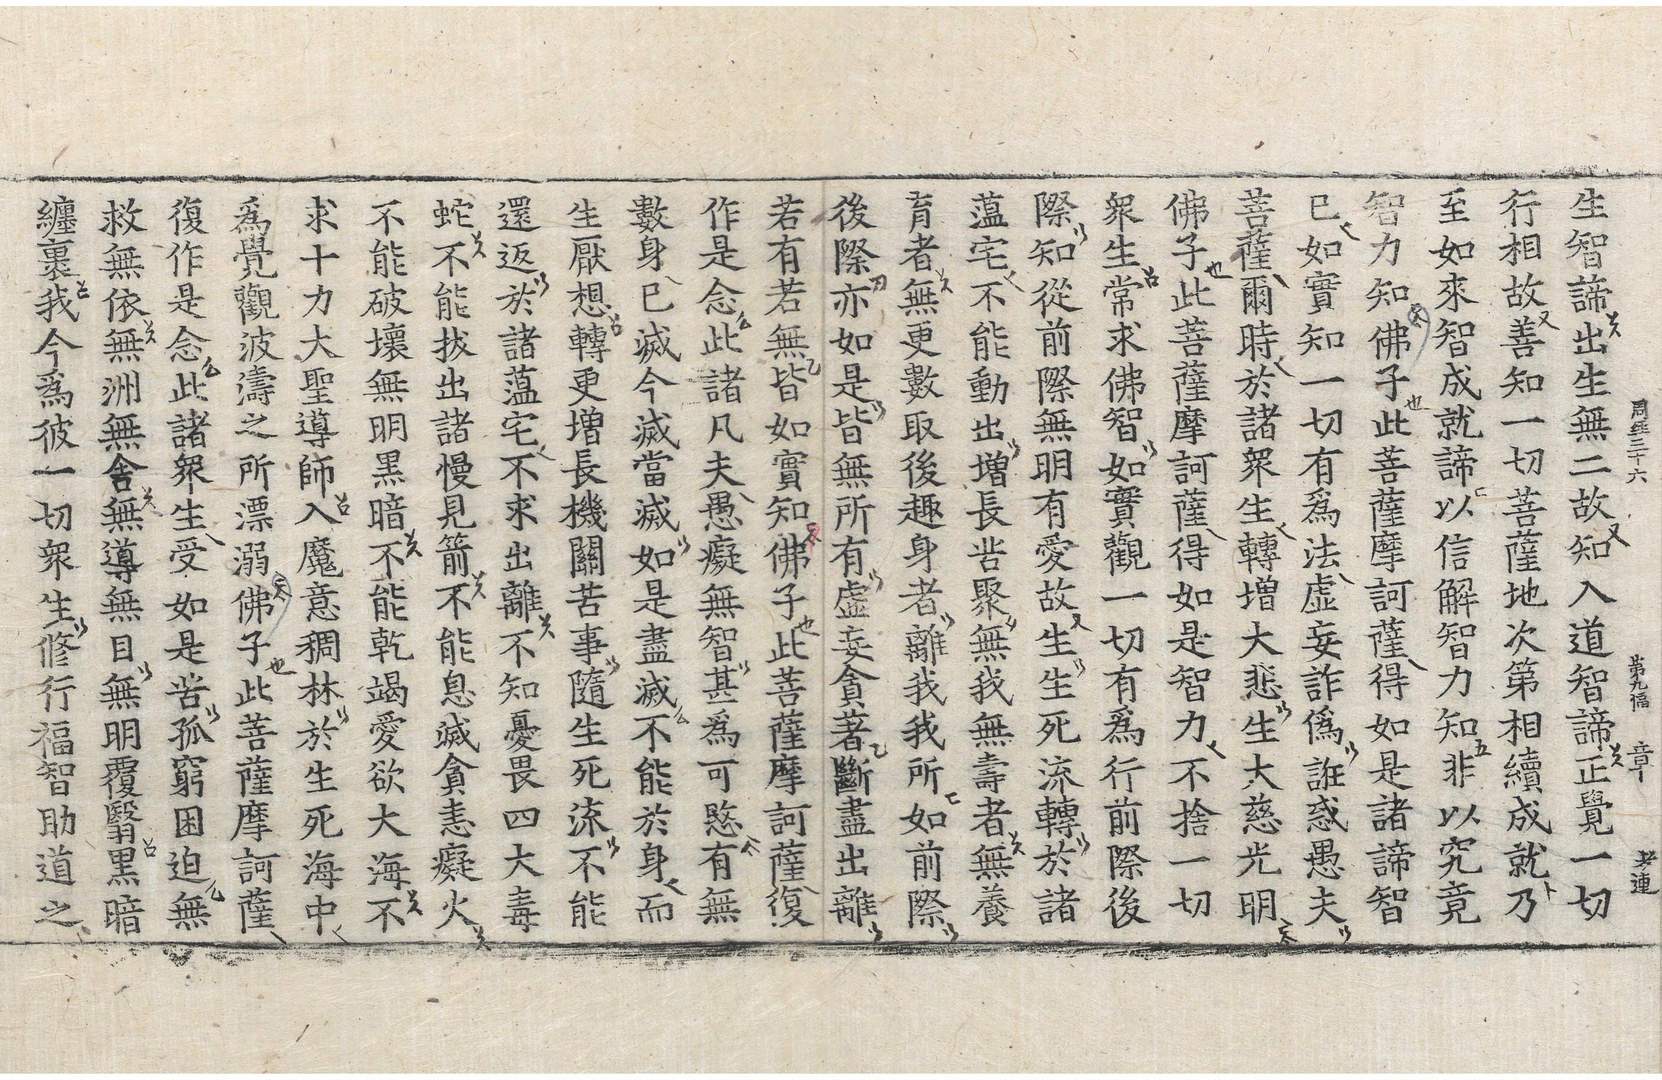 周經三十六 第九幅 章
生智諦出生無二故知入道智諦正覺一切
行相故善知一切菩薩地次第相續成就乃
至如來智成就諦以信解智力知非以究竟
智力知佛子此菩薩摩訶薩得如是諸諦智
已如實知一切有爲法虛妄詐僞誑惑愚夫
菩薩爾時於諸衆生轉增大悲生大慈光明
佛子此菩薩摩訶薩得如是智力不捨一切
衆生常求佛智如實觀一切有爲行前際後
際知從前際無明有愛故生生死流轉於諸
薀宅不能動出增長苦聚無我無壽者無養
育者無更數取後趣身者離我我所如前際
後際亦如是皆無所有虛妄貪著斷盡出離
若有若無皆如實知佛子此菩薩摩訶薩復
作是念此諸凡夫愚癡無智甚爲可愍有無
數身已滅今滅當滅如是盡滅不能於身而
生厭想轉更增長機關苦事隨生死流不能
還返於諸薀宅不求出離不知憂畏四大毒
蛇不能拔出諸慢見箭不能息滅貪恚癡火
不能破壞無明黑暗不能乾竭愛欲大海不
求十力大聖導師入魔意稠林於生死海中
爲覺觀波濤之所漂溺佛子此菩薩摩訶薩
復作是念此諸衆生受如是苦孤窮困迫無
救無依無洲無舍無導無目無明覆翳黑暗
纏裹我今爲彼一切衆生修行福智助道之